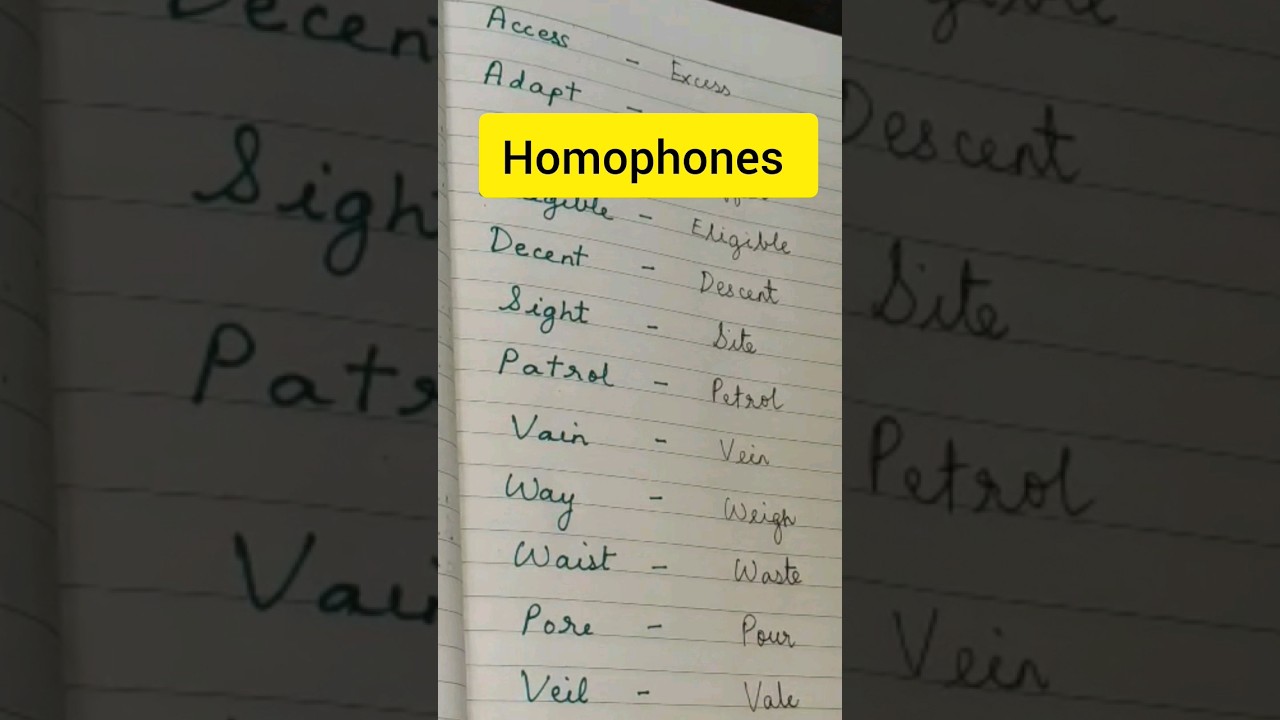 Access - Excess
Adapt -
Homophones
Eligible
Decent - Descent
Sight - Site
Patrol - Petrol
Vain - Vein
Way - Weigh
Waist - Waste
Pore - Pour
Veil - Vale
Descent
Site
Petrol
Vein